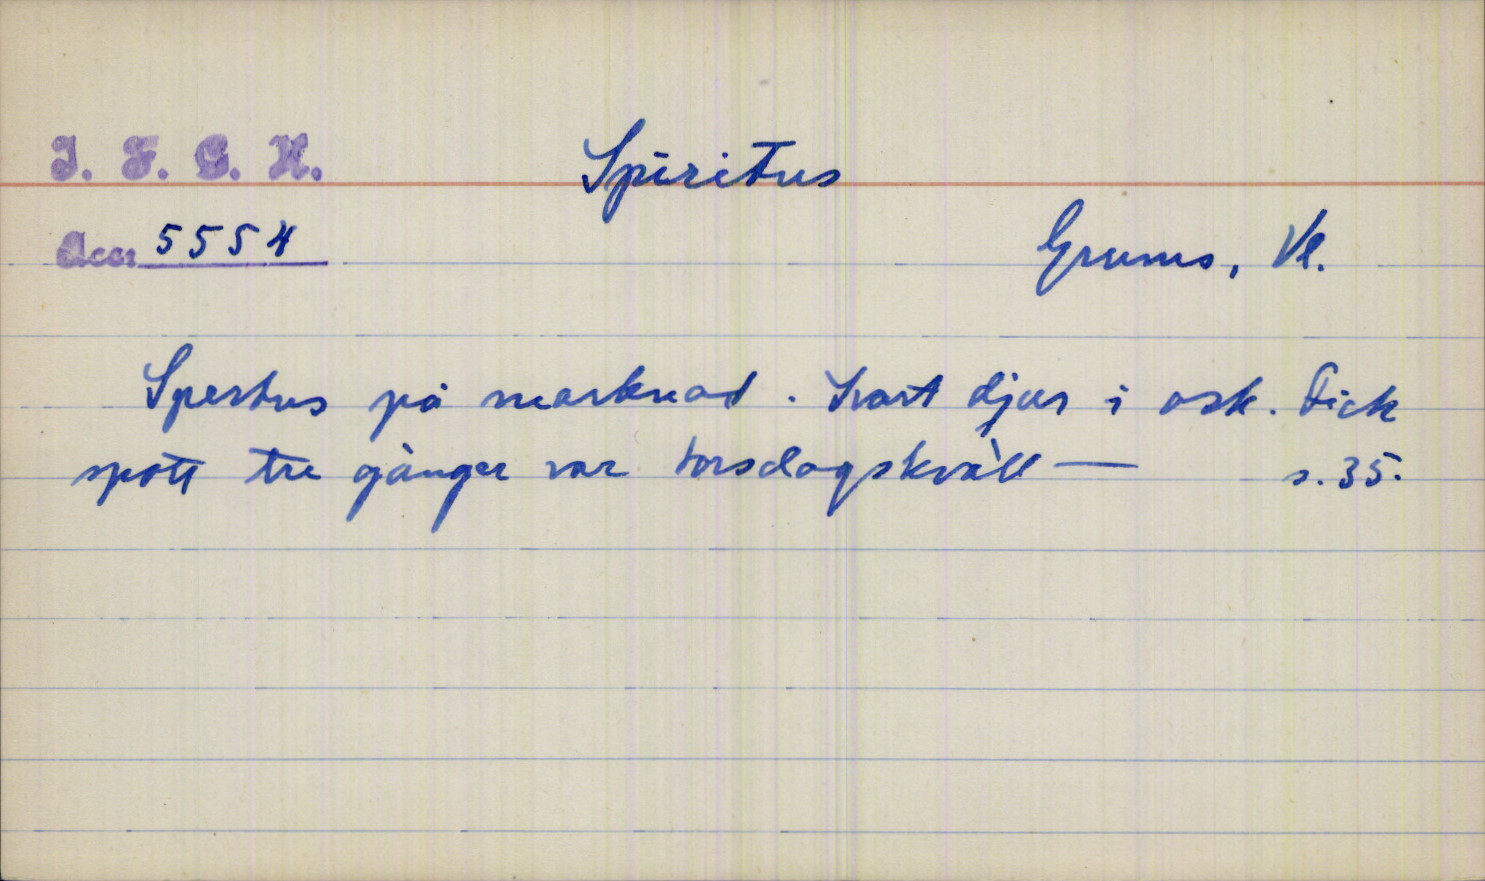 I. F. G. H.
Spiritus
Acc. 5554
Grums, Vl.
Spertus på marknad. Svart djur i ask. Fick
spott tre gånger var torsdagskväll — s. 35.